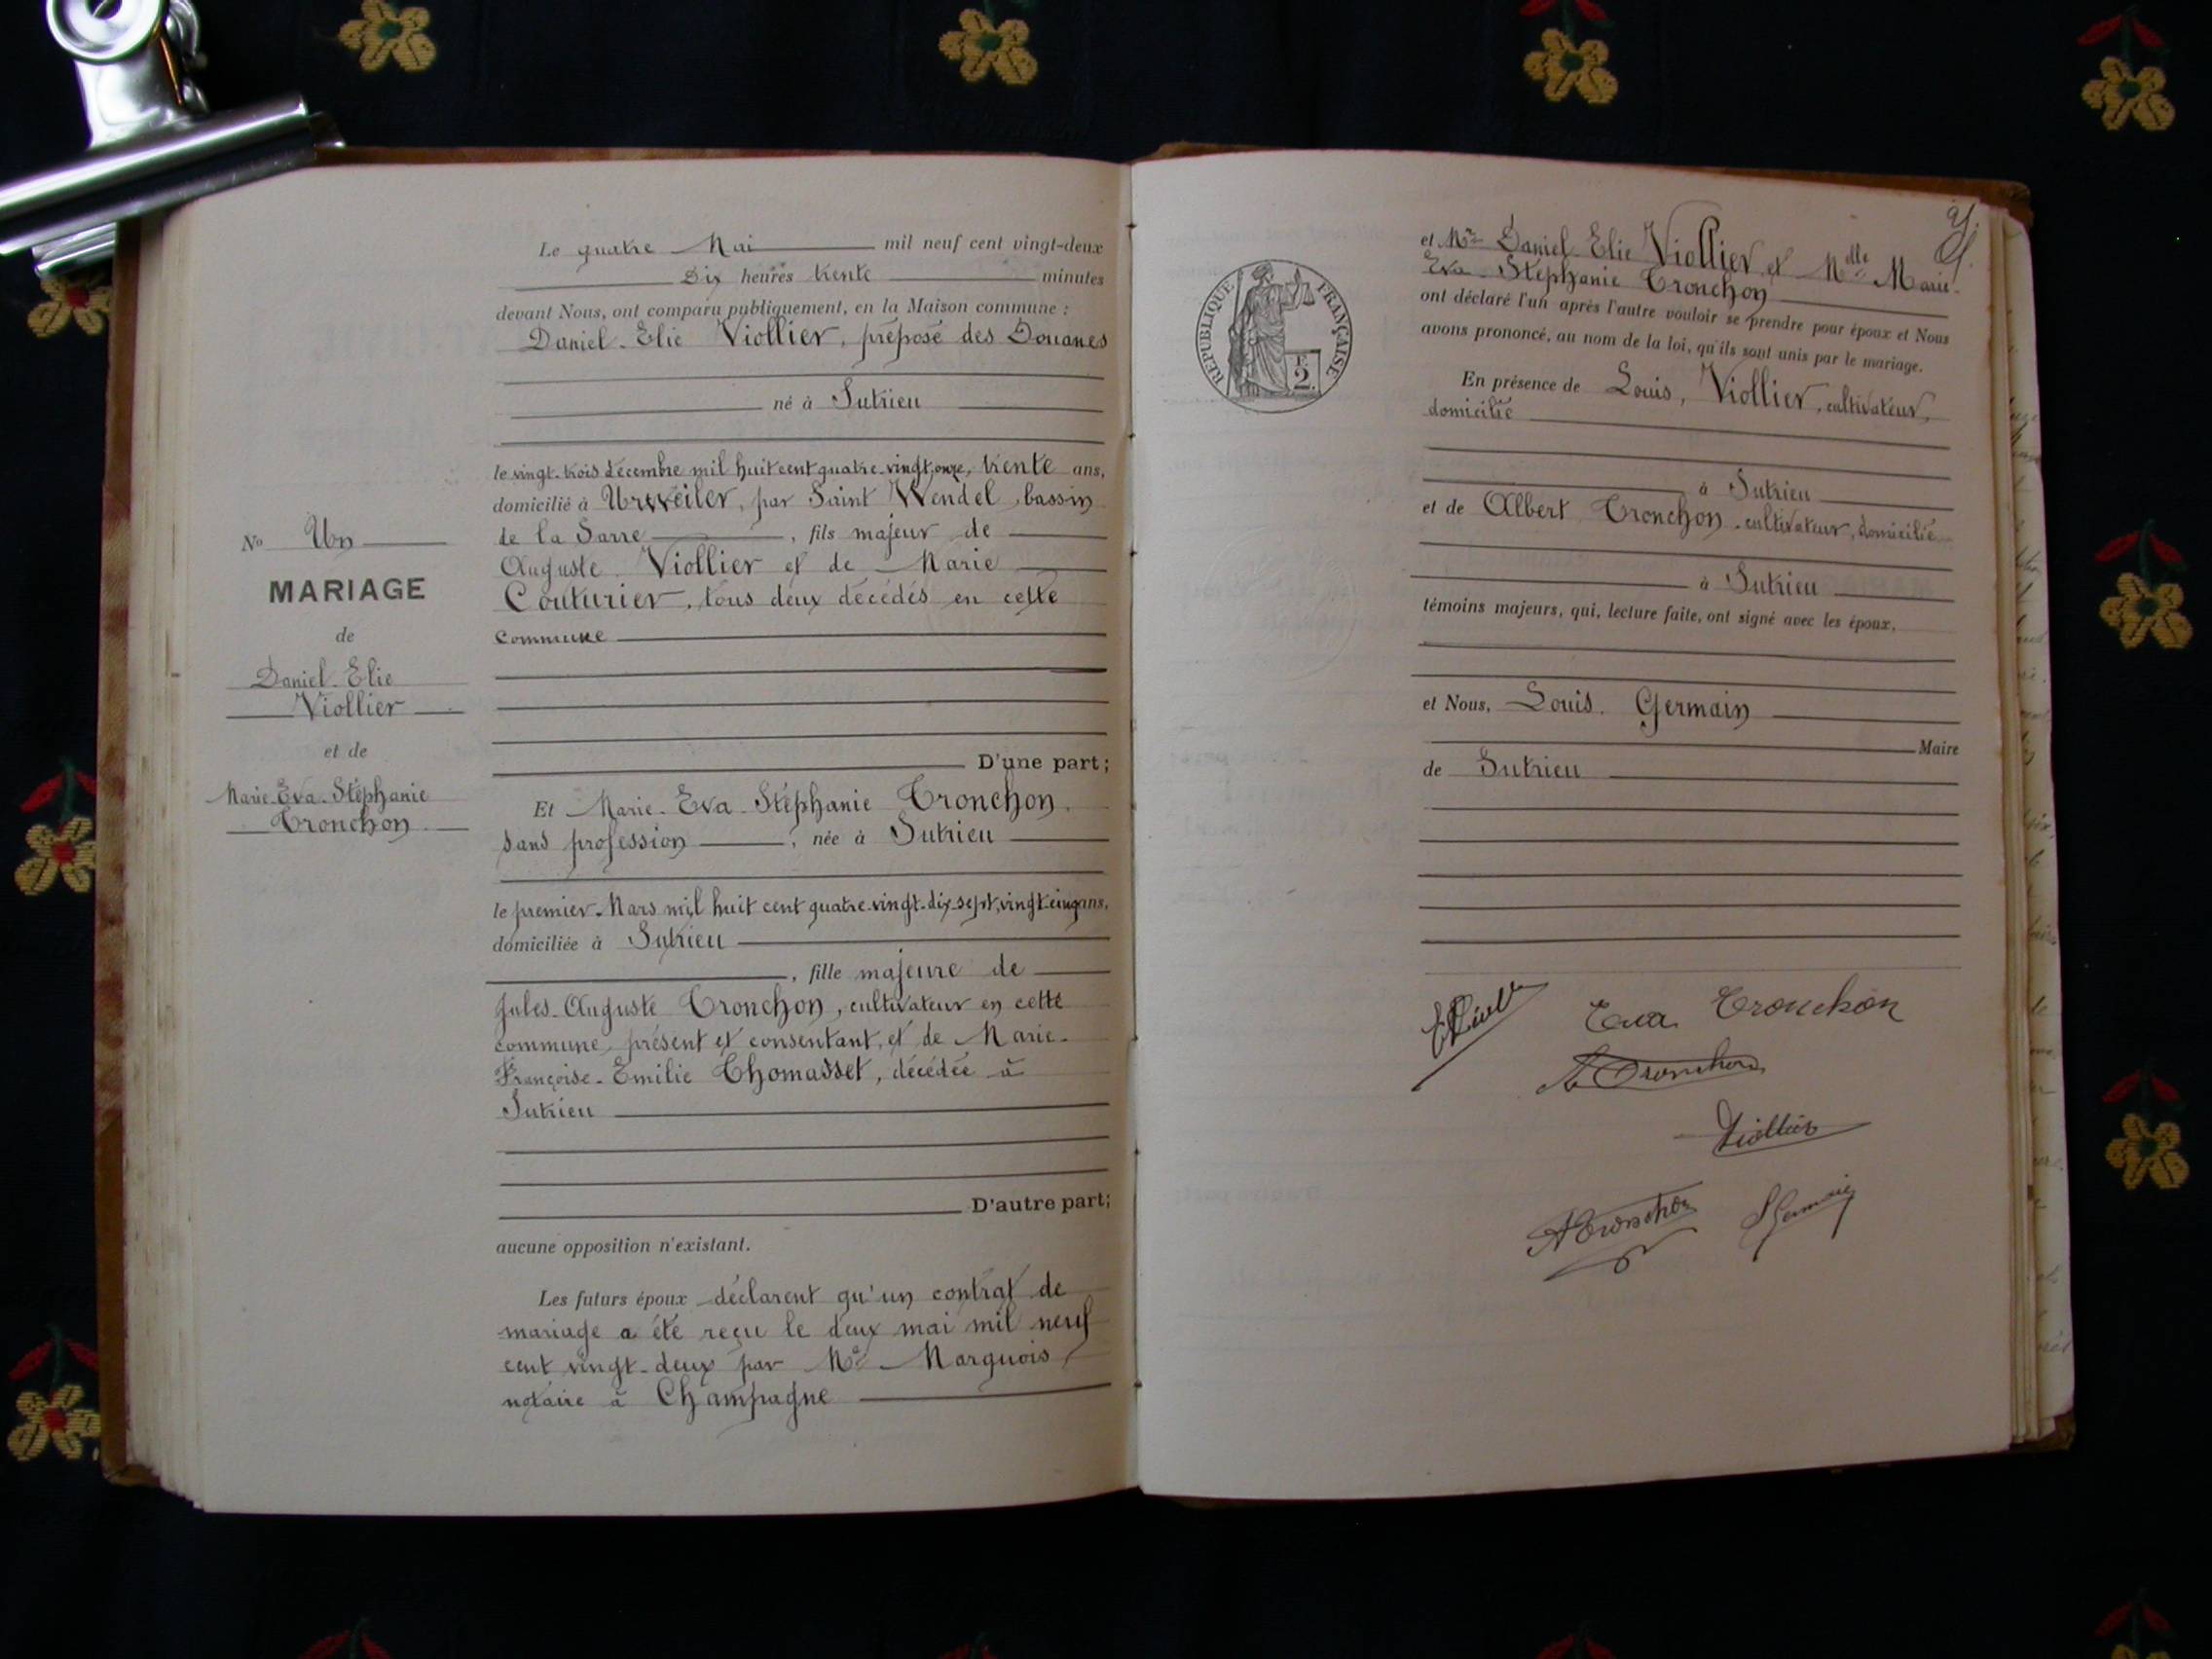 Nº Un
MARIAGE
de
Daniel-Elie
Viollier
et de
Marie-Eva-Stéphanie
Tronchon
Le quatre Mai mil neuf cent vingt-deux
Dix heures trente minutes
devant Nous, ont comparu publiquement, en la Maison commune :
Daniel-Elie Viollier, préposé des Douanes
né à Sutrieu
le vingt-trois Décembre mil huit cent quatre-vingt-onze, trente ans,
domicilié à Urweiler, par Saint Wendel, bassin
de la Sarre, fils majeur de
Auguste Viollier et de Marie
Couturier, tous deux décédés en cette
commune
D'une part;
Et Marie-Eva-Stéphanie Tronchon
sans profession, née à Sutrieu
le premier Mars mil huit cent quatre-vingt-dix-sept, vingt cinq ans,
domiciliée à Sutrieu
, fille majeure de
Jules-Auguste Tronchon, cultivateur en cette
commune, présent et consentant, et de Marie-
Françoise-Emilie Thomasset, décédée à
Sutrieu
D'autre part;
aucune opposition n'existant.
Les futurs époux déclarent qu'un contrat de
mariage a été reçu le deux mai mil neuf
cent vingt-deux par Me Marguois
notaire à Champagne
RÉPUBLIQUE FRANÇAISE
F.
2
et Mr Daniel-Elie Viollier et Mdlle Marie-
Eva-Stéphanie Tronchon
ont déclaré l'un après l'autre vouloir se prendre pour époux et Nous
avons prononcé, au nom de la loi, qu'ils sont unis par le mariage.
En présence de Louis, Viollier, cultivateur,
domicilié
à Sutrieu
et de Albert Tronchon, cultivateur, domicilié
à Sutrieu
témoins majeurs, qui, lecture faite, ont signé avec les époux,
et Nous, Louis Germain
Maire
de Sutrieu
Eva Tronchon
A Tronchon
Viollier
A Tronchon
L Germain